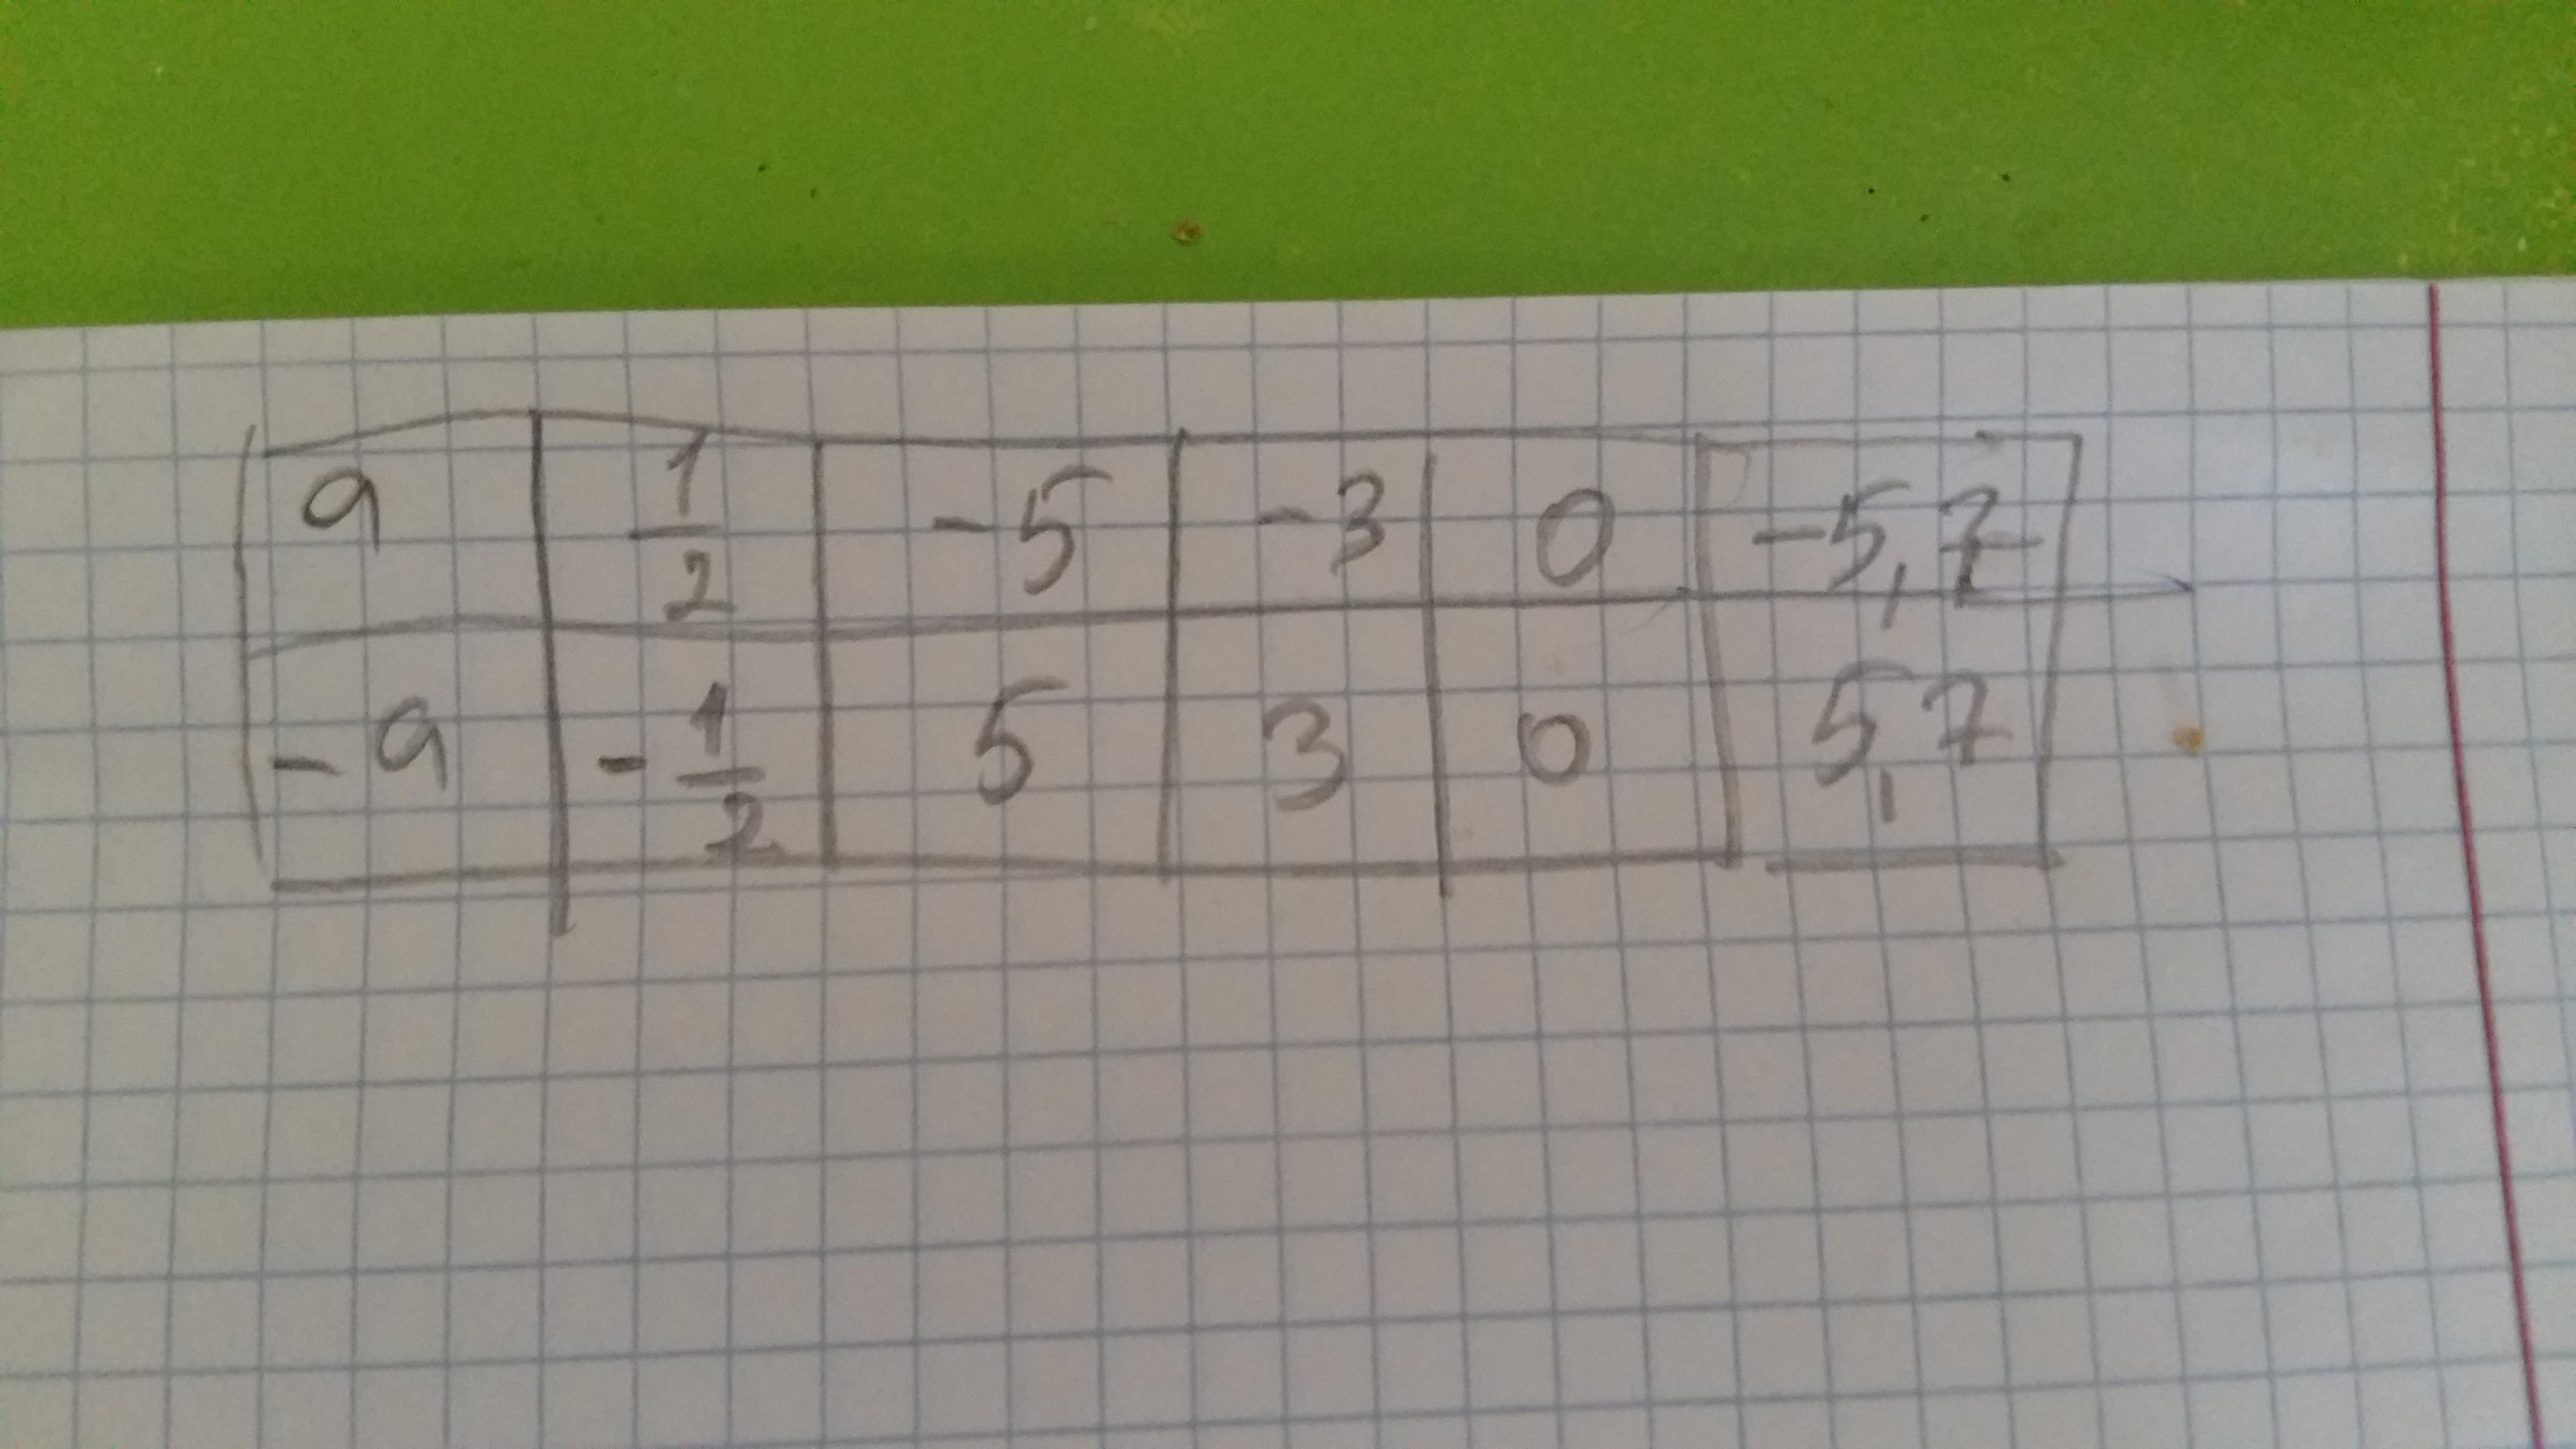 a 1/2 -5 -3 0 -5,7
-a -1/2 5 3 0 5,7